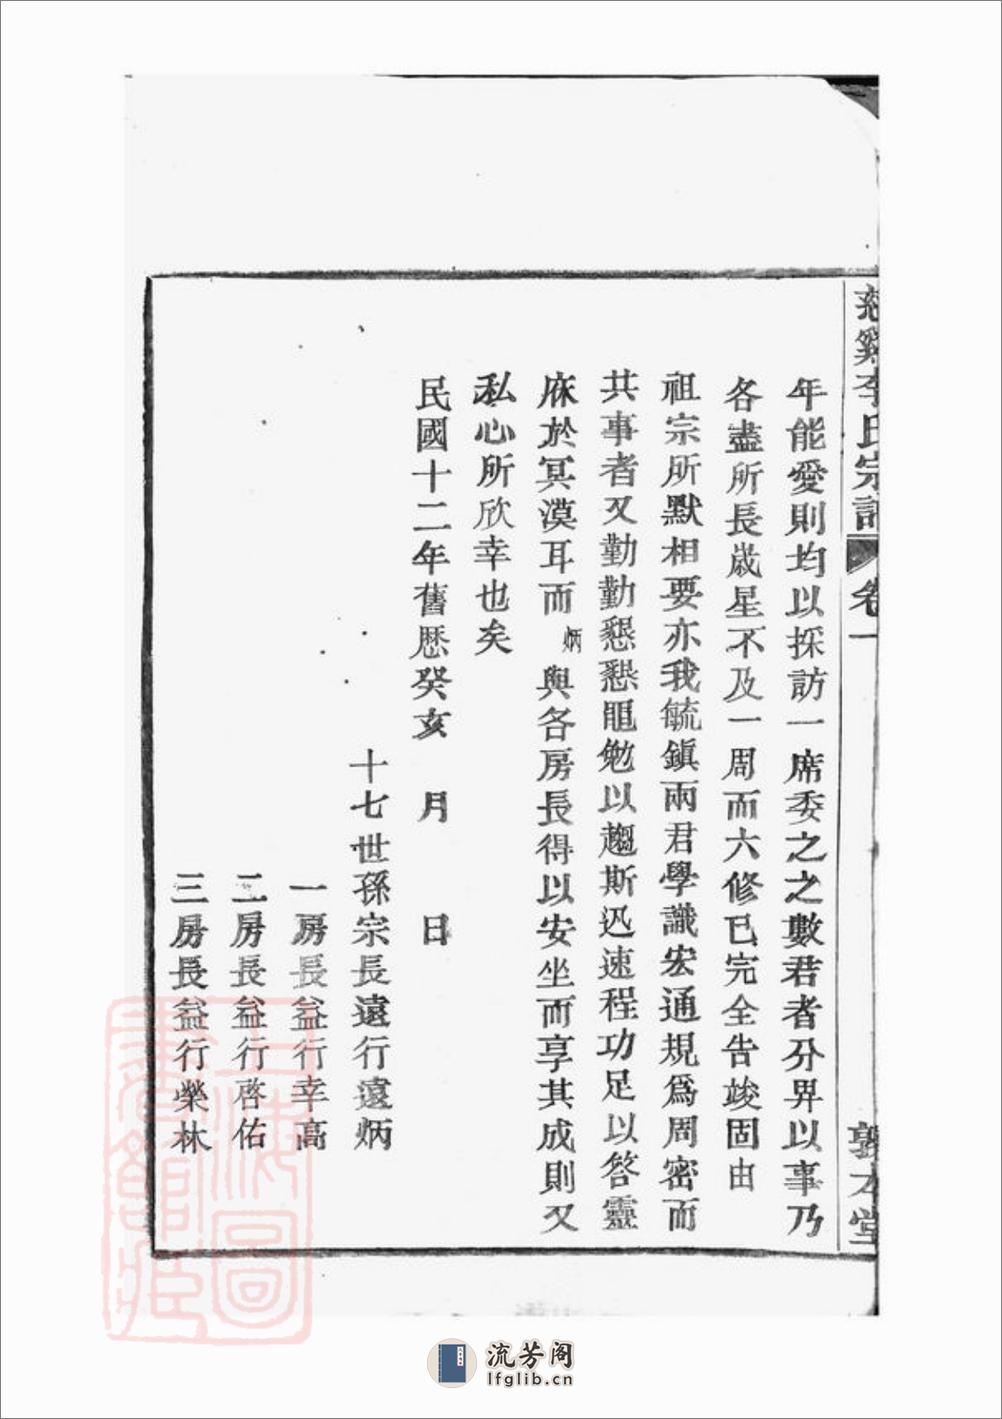 慈谿李氏宗譜
卷一
敦本堂
年能愛則均以採訪一席委之之數君者分畀以事乃
各盡所長歳星不及一周而六修已完全告竣固由
祖宗所默相要亦我毓鎮兩君學識宏通規爲周密而
共事者又勤勤懇懇黽勉以趨斯迅速程功足以答靈
庥於冥漠耳而炳與各房長得以安坐而享其成則又
私心所欣幸也矣
民國十二年舊厯癸亥 月 日
十七世孫宗長遠行遠炳
一房長益行幸高
二房長益行啓佑
三房長益行榮林
上海圖書館藏
流芳阁
lfglib.cn